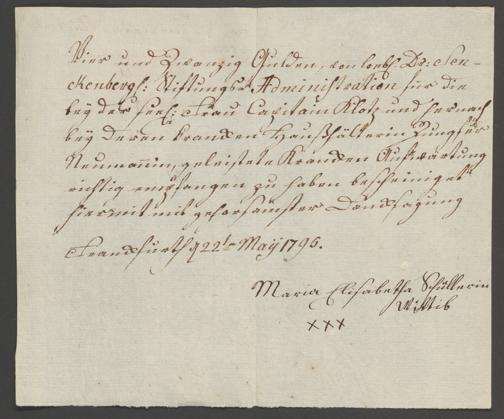 Vier und Zwanzig Gulden, von löbl. Dr: Sen-
ckenbergl: Stiftungs Administration für die
bey der seel: Frau Capitain Klotz und hernach
bey deren krancken Haußhälterin Jungfer
Neumännin, geleistete Krancken Aufwartung
richtig empfangen zu haben bescheiniget
hiermit mit gehorsamster Dancksagung
Franckfurth d 22t May 1796.
Maria Elisabetha Schüllerin
Wittib
xxx